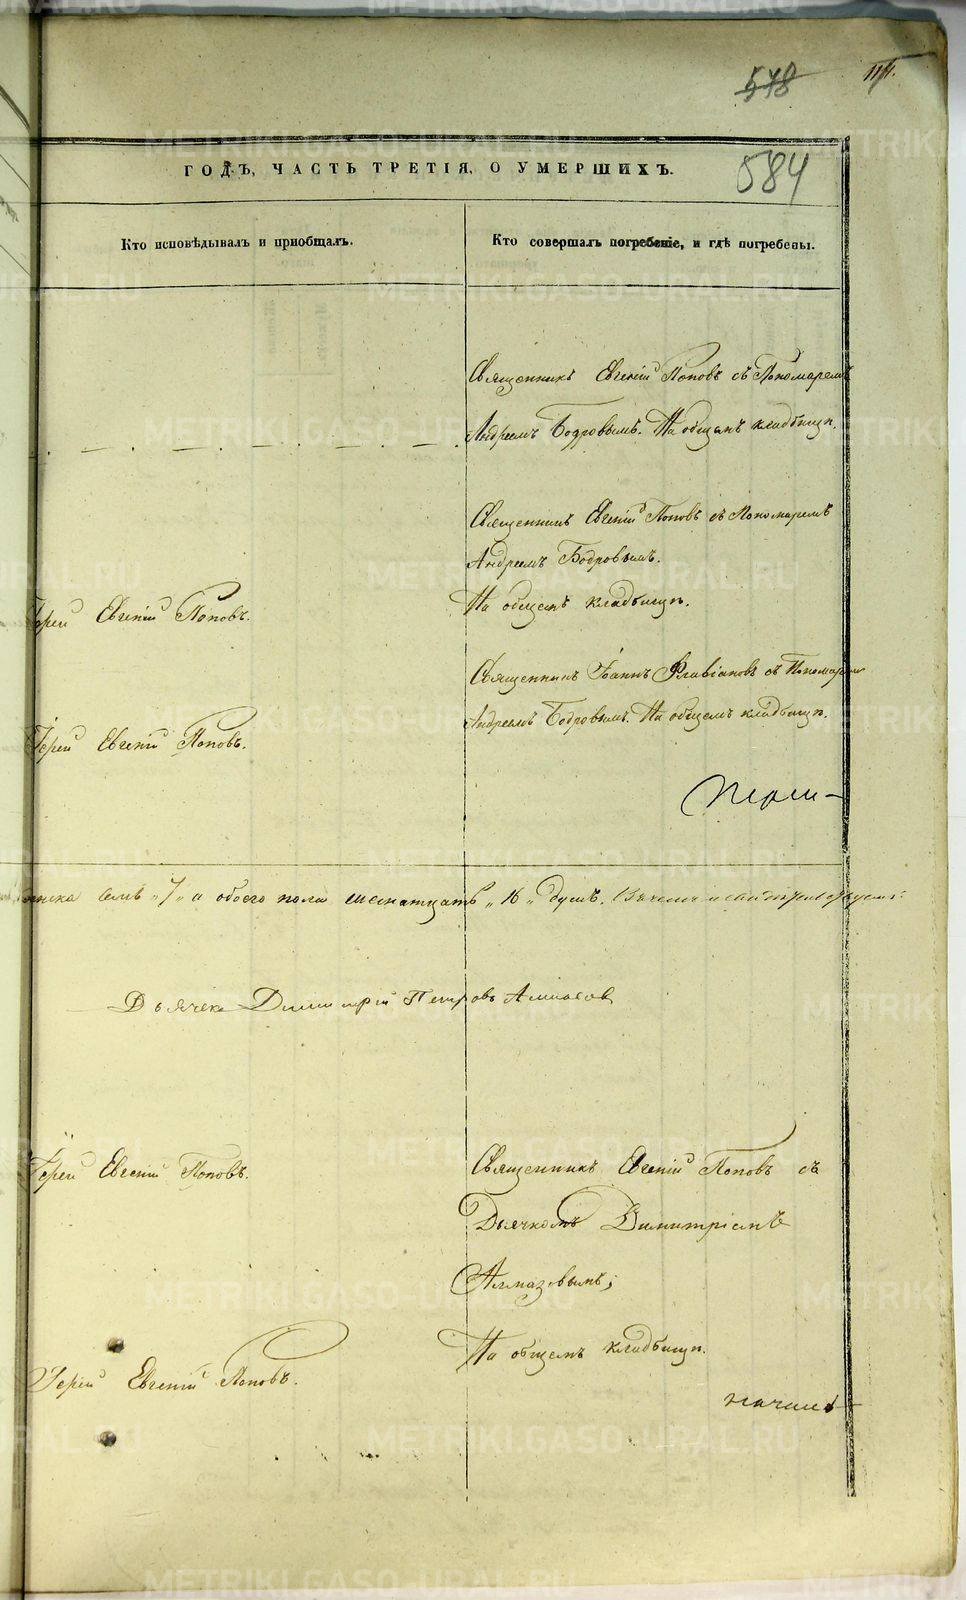 578
584
ГОДЪ, ЧАСТЬ ТРЕТІЯ, О УМЕРШИХЪ.
Кто исповѣдывалъ и приобщалъ.
Кто совершалъ погребеніе, и гдѣ погребены.
Священникъ Евгеній Поповъ съ Пономаремъ
Андреемъ Бодровымъ. На общемъ кладбищѣ.
Священникъ Евгеній Поповъ съ Пономаремъ
Андреемъ Бодровымъ.
На общемъ кладбищѣ.
Іерей Евгеній Поповъ.
Священникъ Іоаннъ Флавіановъ съ Пономаремъ
Андреемъ Бодровымъ. На общемъ кладбищѣ.
Іерей Евгеній Поповъ.
семь „7„ а обоего пола шеснатцать „16„ душъ.
Дьячекъ Димитрій Петровъ Алмазовъ
Іерей Евгеній Поповъ.
Священникъ Евгеній Поповъ съ
Дьячкомъ Димитріемъ
Алмазовымъ;
На общемъ кладбищѣ.
Іерей Евгеній Поповъ.
METRIKI.GASO-URAL.RU